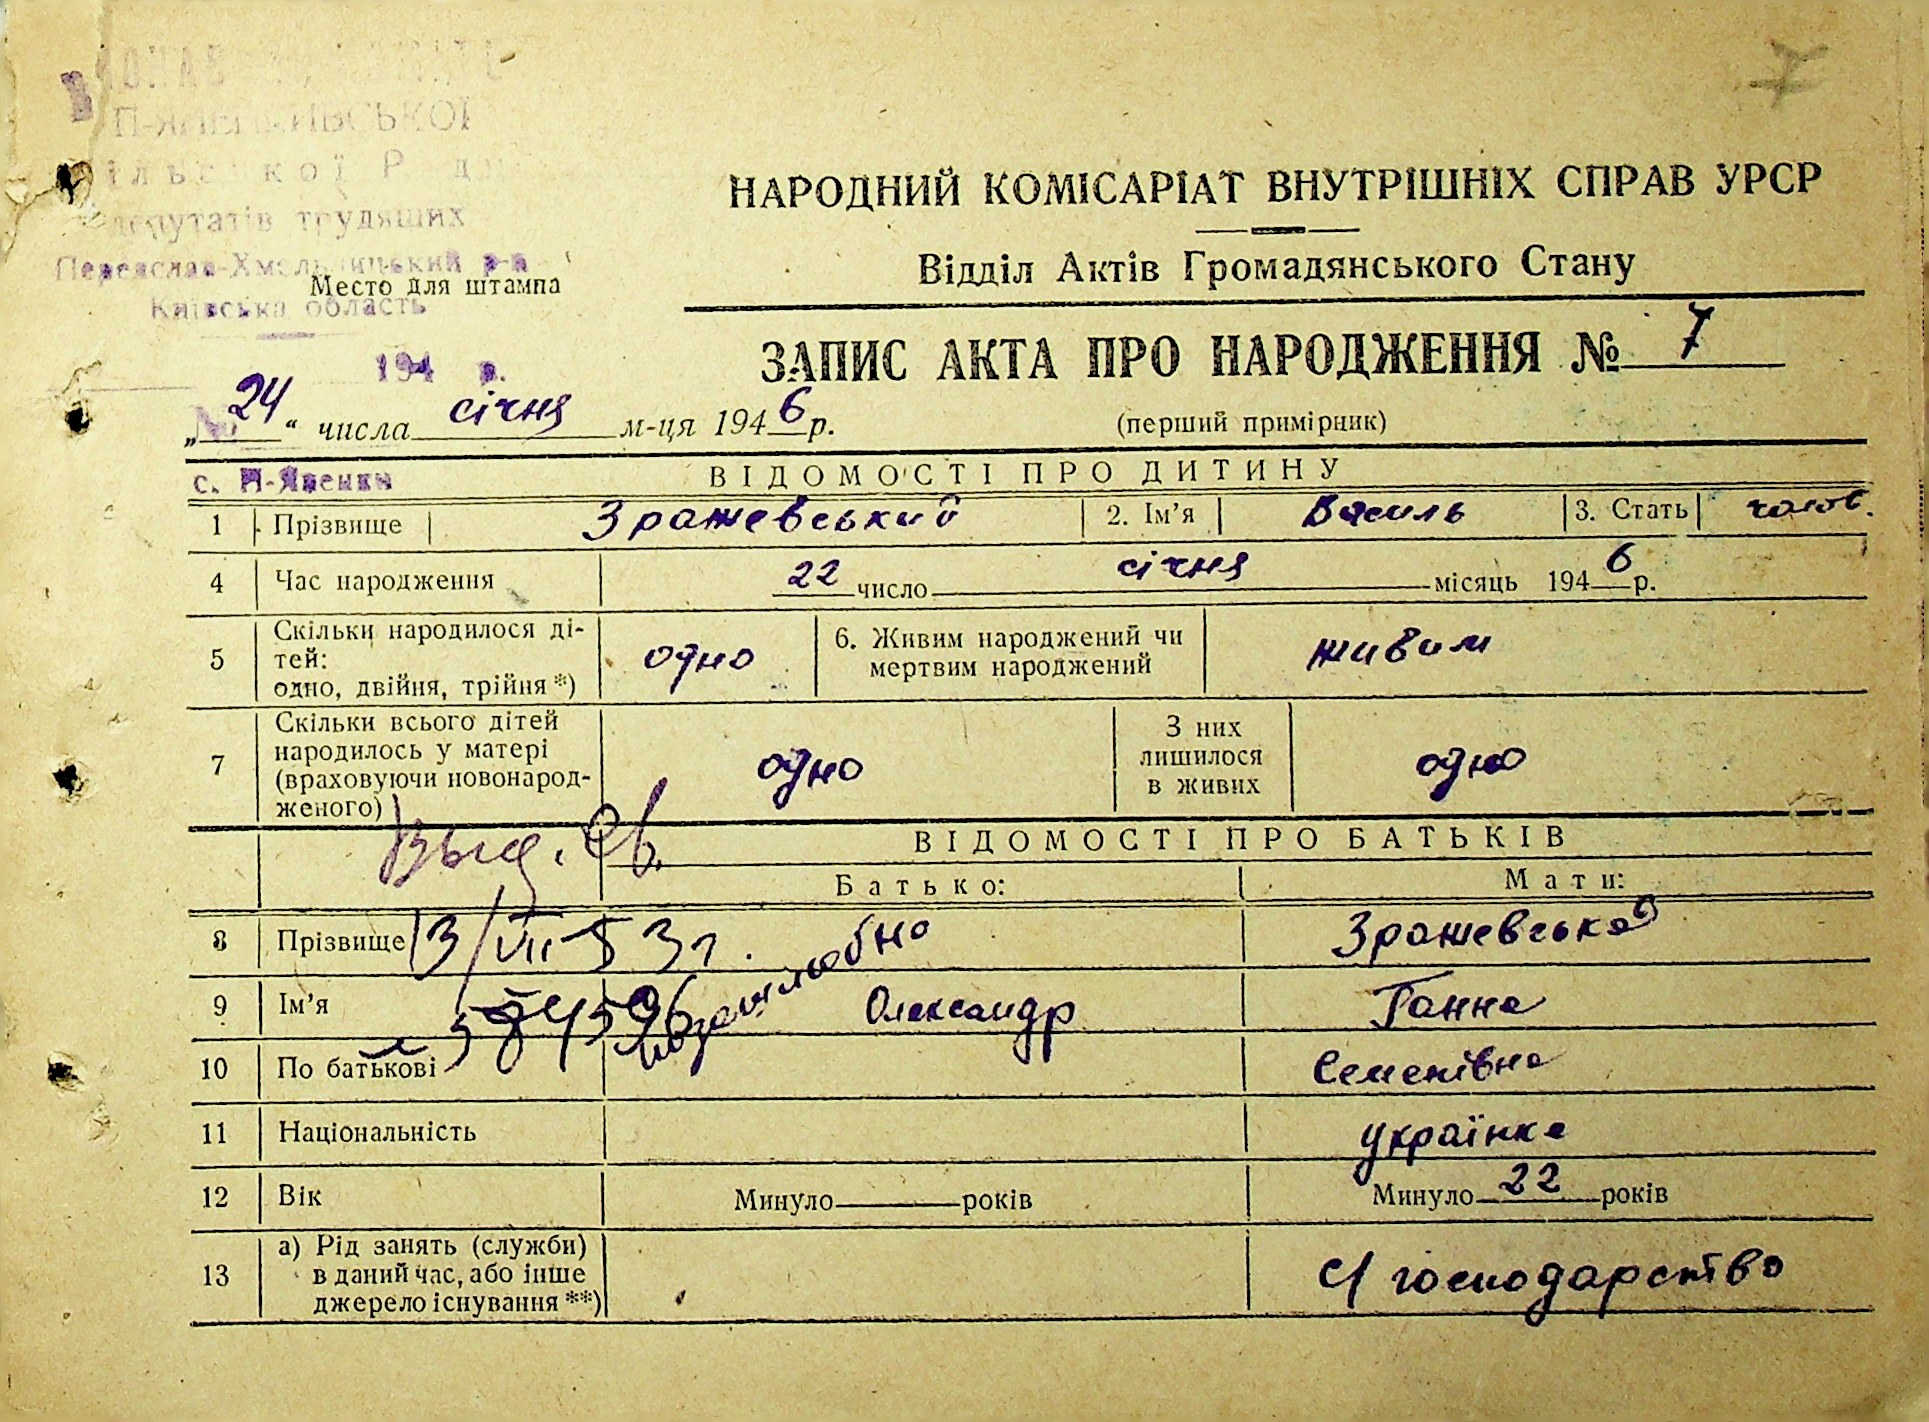 П-ЯНЕНКІВСЬКОЇ
депутатів трудящих
Переяслав-Хмельницький р-н
Место для штампа
Київська область
194 р.
7
НАРОДНИЙ КОМІСАРІАТ ВНУТРІШНІХ СПРАВ УРСР
Відділ Актів Громадянського Стану
ЗАПИС АКТА ПРО НАРОДЖЕННЯ № 7
(перший примірник)
„24“ числа січня м-ця 1946 р.
с. П-Яненки
ВІДОМОСТІ ПРО ДИТИНУ
1 Прізвище Зражевський 2. Ім'я Василь 3. Стать чолов.
4 Час народження 22 число січня місяць 1946 р.
5 Скільки народилося ді-
тей:
одно, двійня, трійня *)
одно
6. Живим народжений чи
мертвим народжений
живим
7 Скільки всього дітей
народилось у матері
(враховуючи новонарод-
женого)
одно
З них
лишилося
в живих
одно
Выд. св.
13/VII-53 г.
ВІДОМОСТІ ПРО БАТЬКІВ
Батько: Мати:
8 Прізвище Зражевська
9 Ім'я Олександр Ганна
10 По батькові Семенівна
11 Національність українка
12 Вік Минуло років Минуло 22 років
13 а) Рід занять (служби)
в даний час, або інше
джерело існування **)
с/господарство